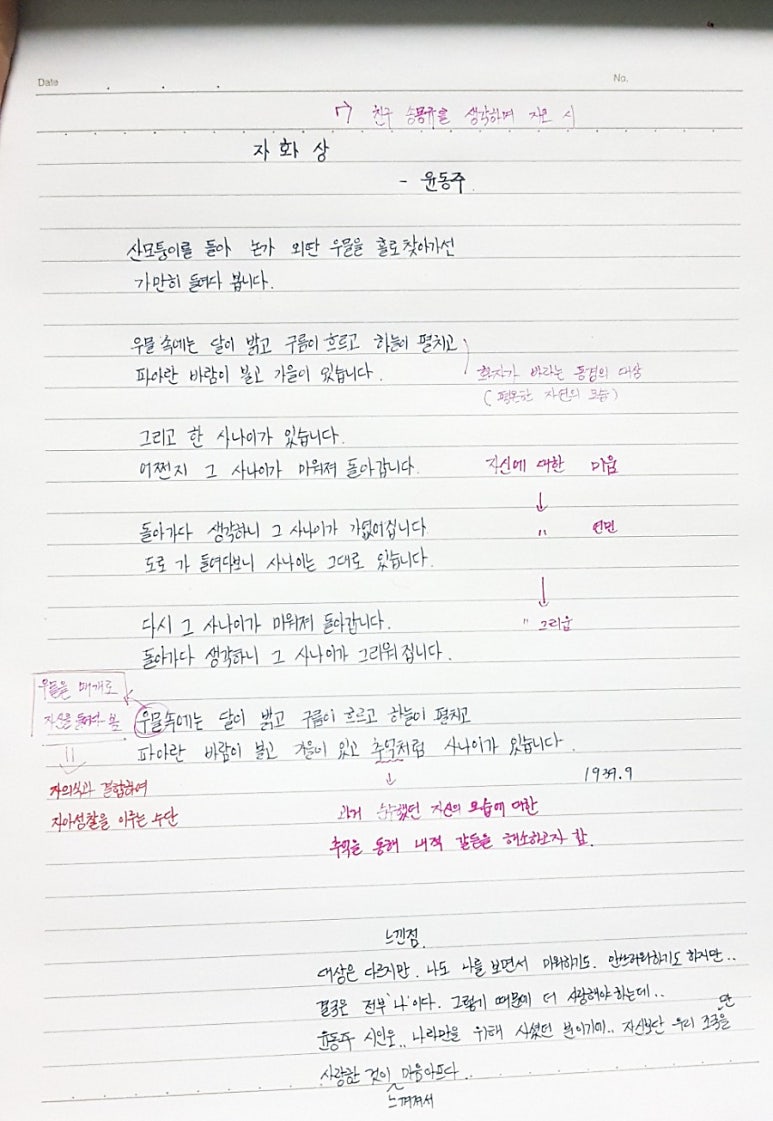 Date
No.
→ 친구 송몽규를 생각하며 지은 시
자화상
- 윤동주.
산모퉁이를 돌아 논가 외딴 우물을 홀로 찾아가선
가만히 들여다 봅니다.
우물 속에는 달이 밝고 구름이 흐르고 하늘이 펼치고
파아란 바람이 불고 가을이 있습니다.
화자가 바라는 동경의 대상
(평온한 자연의 모습)
그리고 한 사나이가 있습니다.
어쩐지 그 사나이가 미워져 돌아갑니다.
자신에 대한 미움
↓
돌아가다 생각하니 그 사나이가 가엾어집니다.
" 연민
도로 가 들여다보니 사나이는 그대로 있습니다.
↓
다시 그 사나이가 미워져 돌아갑니다.
" 그리움
돌아가다 생각하니 그 사나이가 그리워집니다.
우물을 매개로
자신을 들여다 봄
우물속에는 달이 밝고 구름이 흐르고 하늘이 펼치고
파아란 바람이 불고 가을이 있고 추억처럼 사나이가 있습니다.
1939.9
자의식과 결합하여
자아성찰을 이루는 수단
↓
과거 순수했던 자신의 모습에 대한
추억을 통해 내적 갈등을 해소하고자 함.
느낀점.
대상은 다르지만. 나도 나를 보면서 미워하기도. 안쓰러워하기도 하지만..
결국은 전부 '나'이다. 그렇기 때문에 더 사랑해야 하는데..
윤동주 시인은.. 나라만을 위해 사셨던 분이기에.. 자신보단 우리 조국을 만
사랑한 것이 느껴져서 마음아프다..